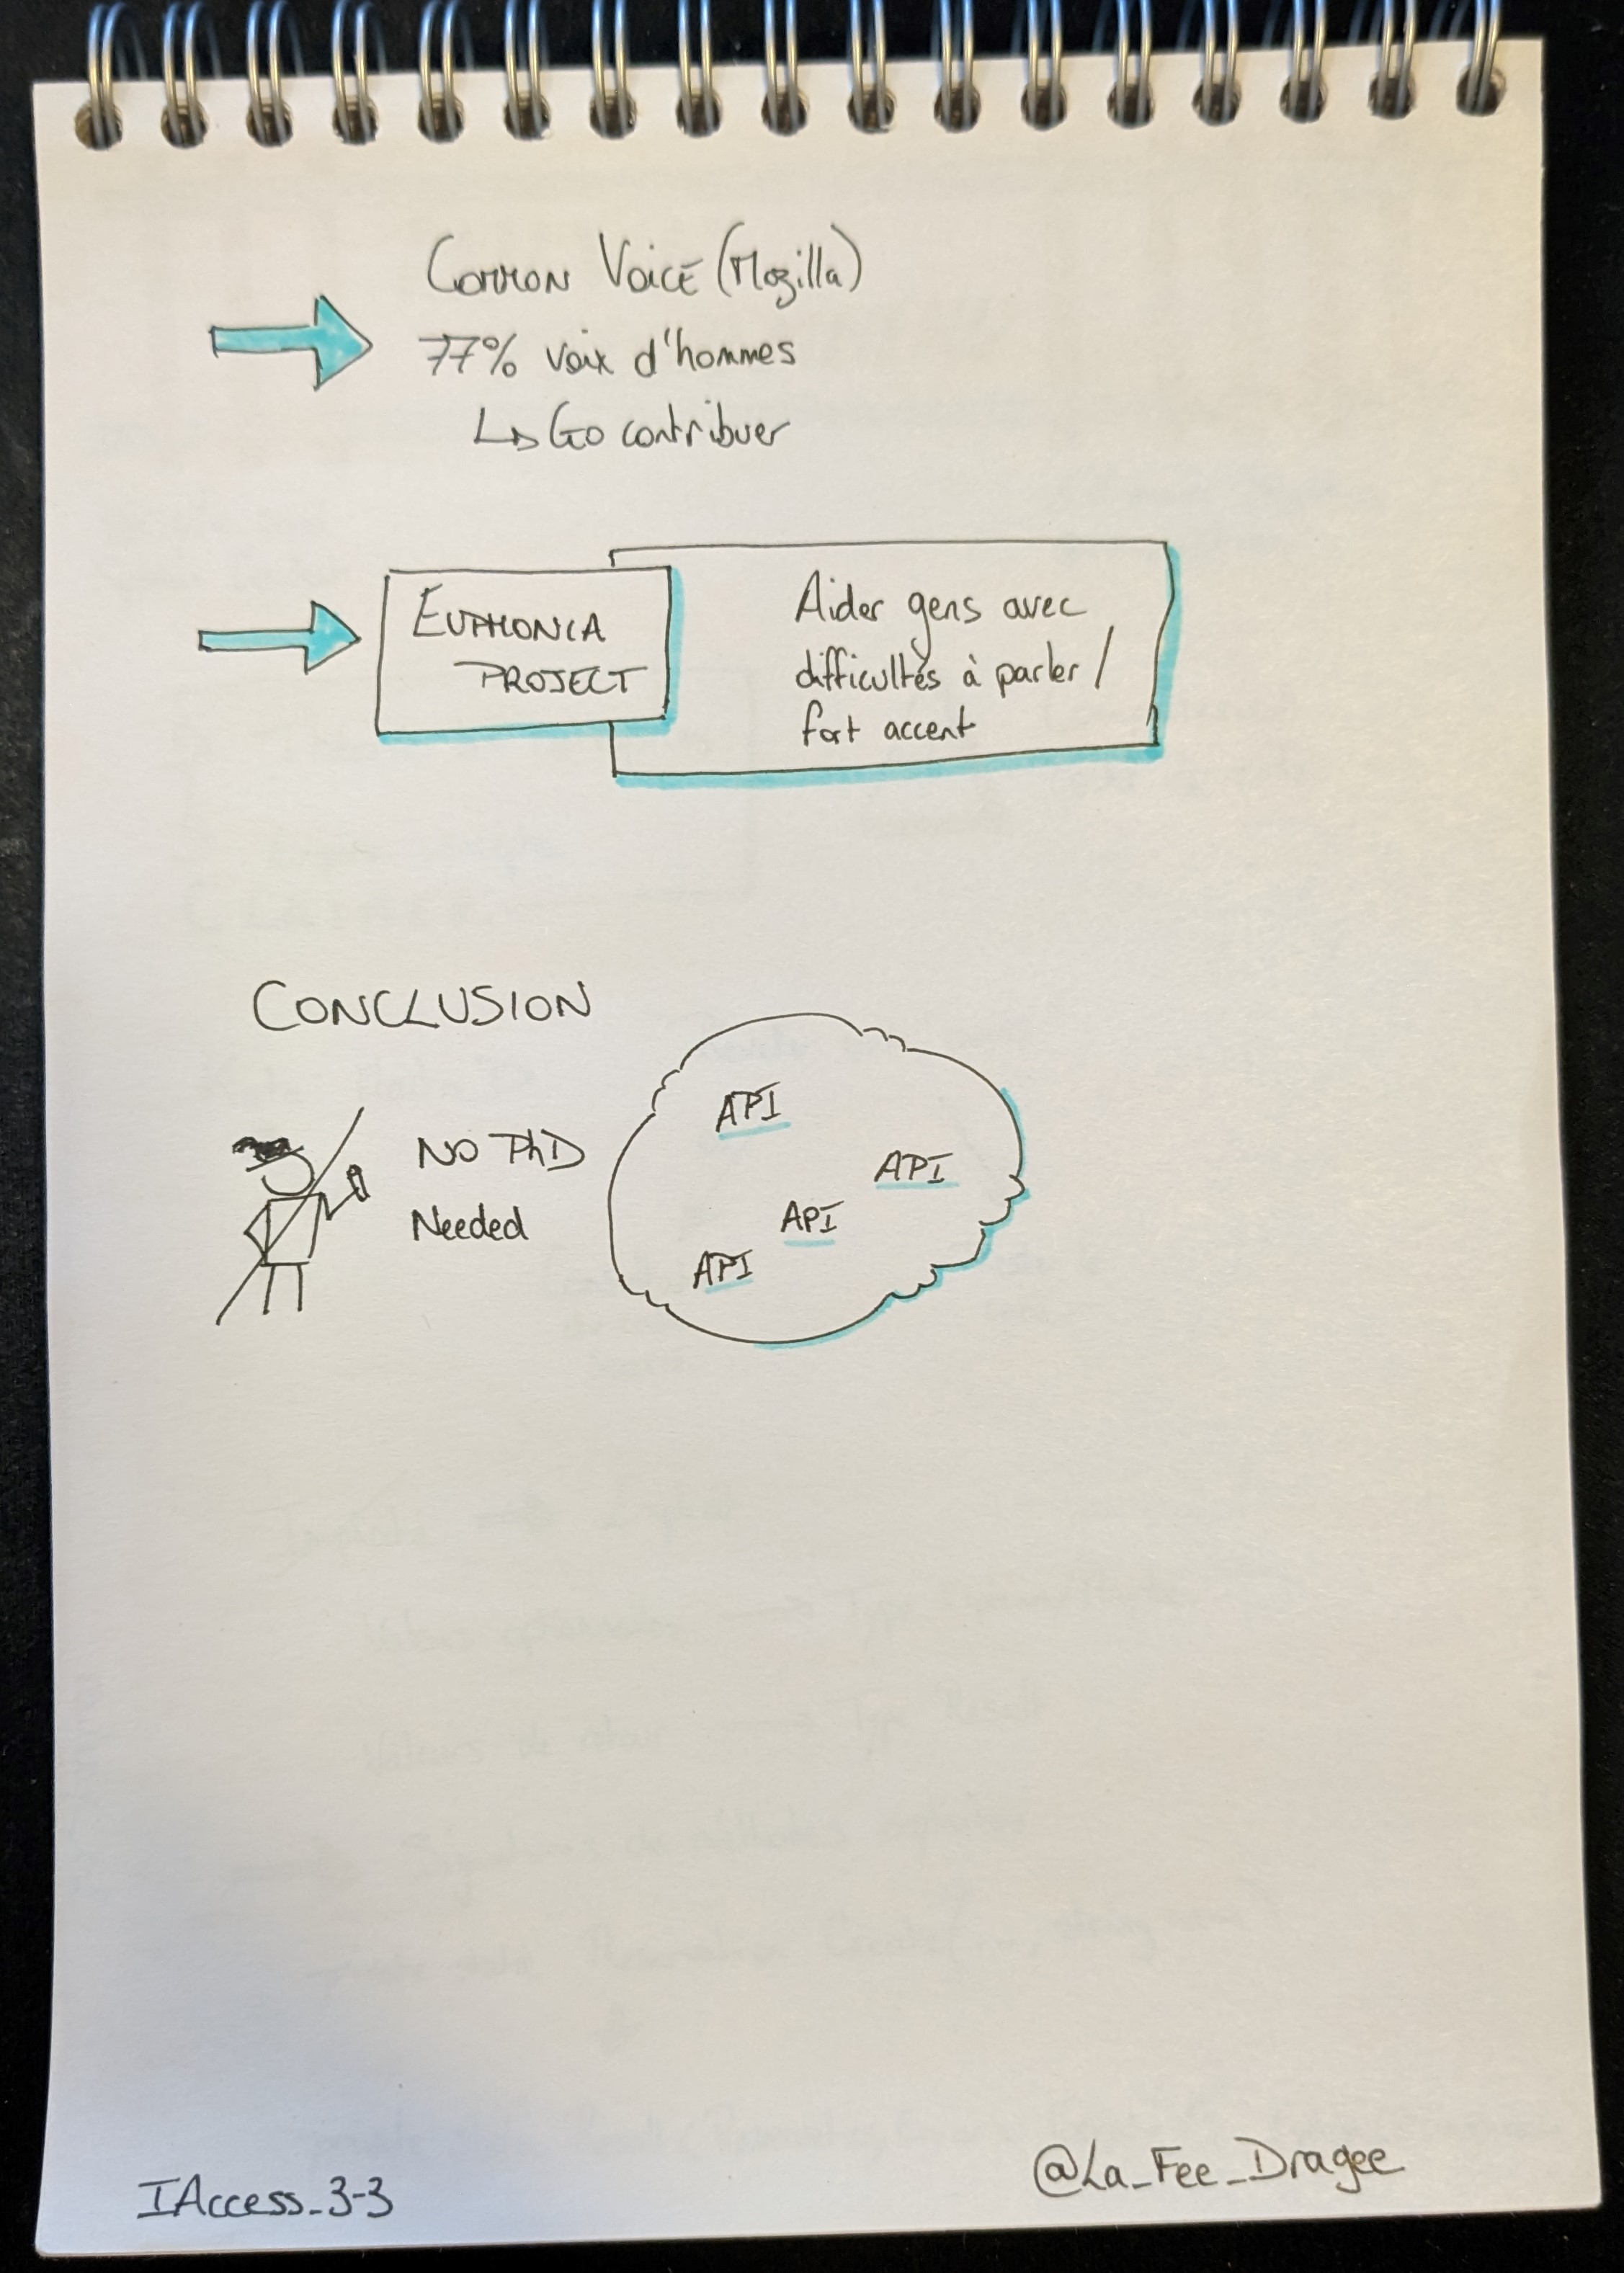 Common Voice (Mozilla)
77% voix d'hommes
Go contribuer
EUPHONIA
PROJECT
Aider gens avec
difficultés à parler /
fort accent
CONCLUSION
NO PhD
Needed
API
API
API
API
IAccess_3-3
@La_Fee_Dragee